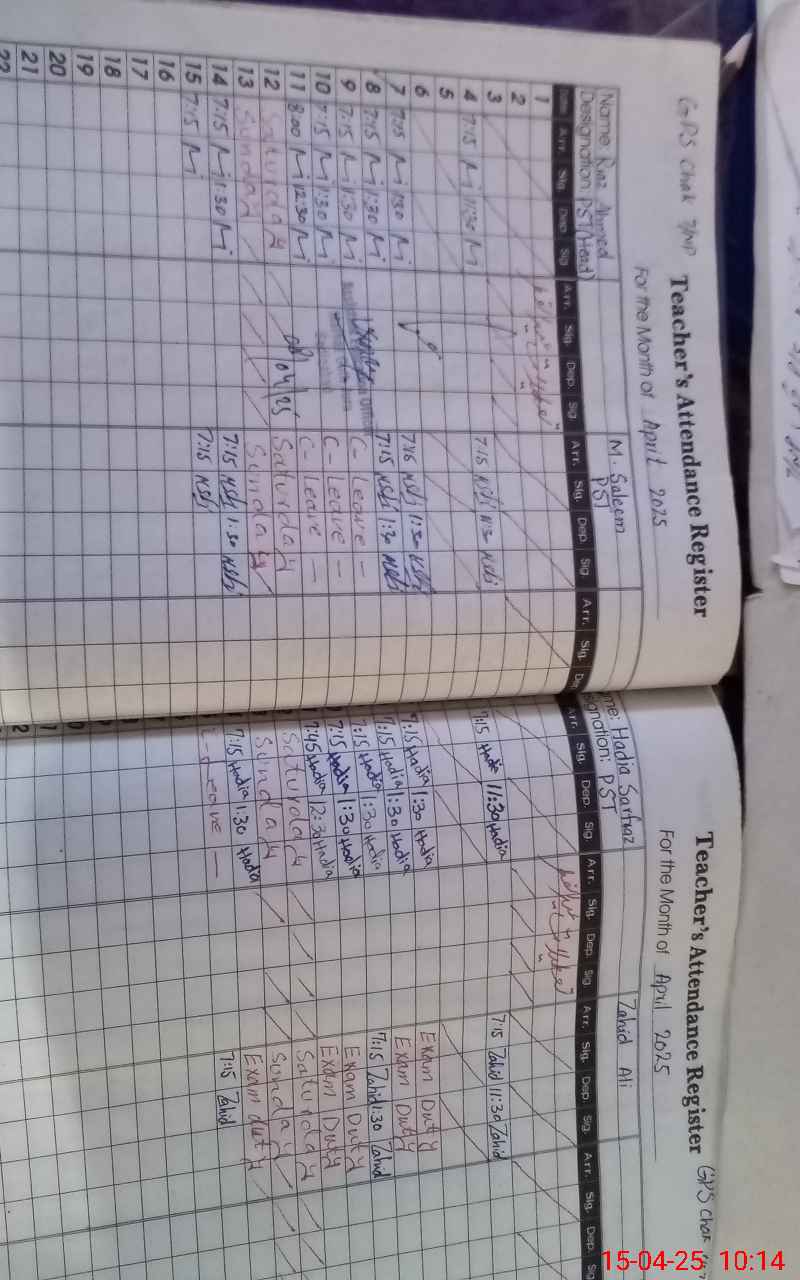 GPS Chak 7/NP Teacher's Attendance Register
For the Month of April 2025
Name: Riaz Ahmed M. Saleem
Designation: PST(Head) PST
Date Arr. Sig. Dep. Sig Arr. Sig. Dep. Sig Arr. Sig. Dep. Sig. Arr. Sig. Dep
1
2
3
4 7:15 M 11:30 M 7:15 11:30
5
6
7 7:15 M 1:30 M 7:15 1:30
8 7:15 M 1:30 M 7:15 1:30
9 7:15 M 1:30 M C- Leave -
10 7:15 M 1:30 M C- Leave -
11 8:00 M 12:30 M 08/04/25 C- Leave -
12 Saturday Saturday
13 Sunday Sunday
14 7:15 M 1:30 M 7:15 1:30
15 7:15 M 7:15
16
17
18
19
20
21
22
Teacher's Attendance Register GPS Chak
For the Month of April 2025
me: Hadia Sarfraz Zahid Ali
signation: PST
Arr. Sig. Dep. Sig. Arr. Sig. Dep. Sig Arr. Sig. Dep. Sig. Arr. Sig. Dep. Sig
7:15 Hadia 11:30 Hadia 7:15 Zahid 11:30 Zahid
7:15 Hadia 1:30 Hadia Exam Duty
7:15 Hadia 1:30 Hadia Exam Duty
7:15 Hadia 1:30 Hadia 7:15 Zahid 1:30 Zahid
7:15 Hadia 1:30 Hadia Exam Duty
7:45 Hadia 12:30 Hadia Exam Duty
Saturday Saturday
Sunday Sunday
7:15 Hadia 1:30 Hadia Exam duty
Leave - 7:15 Zahid
15-04-25 10:14